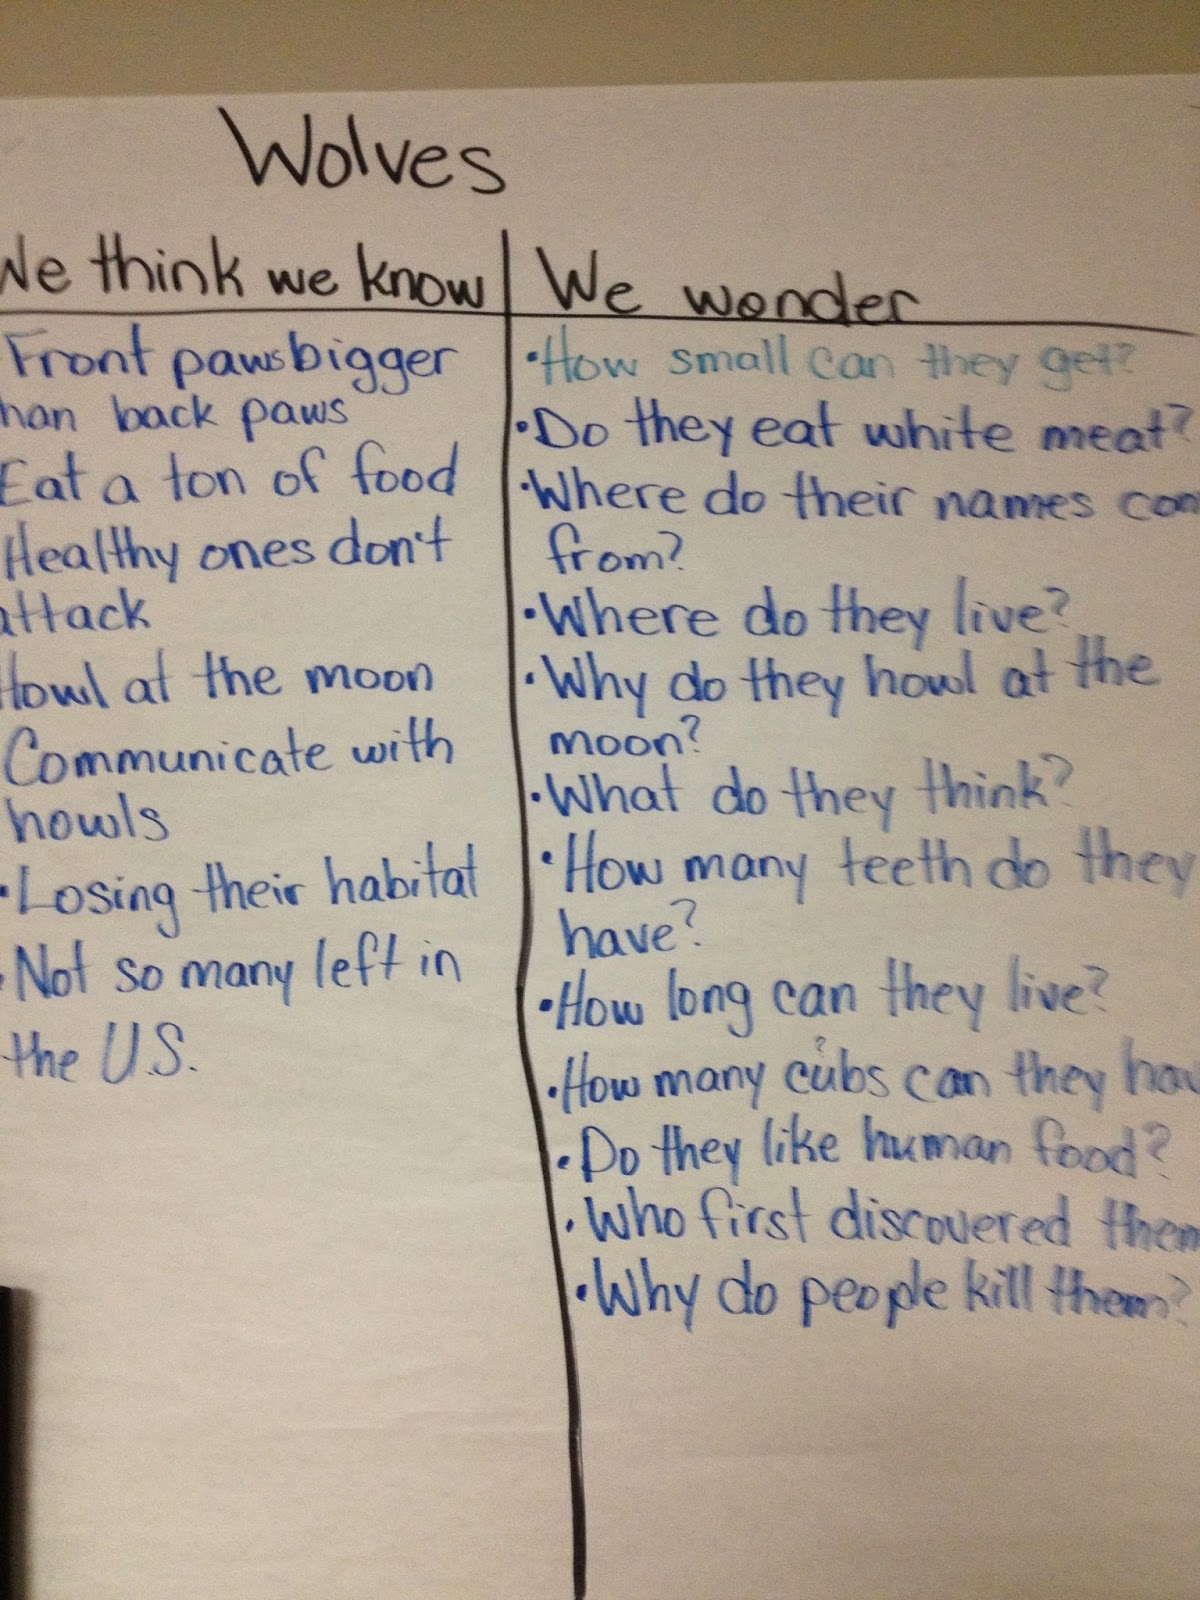 Wolves
We think we know
Front paws bigger
han back paws
Eat a ton of food
Healthy ones don't
attack
Howl at the moon
Communicate with
howls
• Losing their habitat
• Not so many left in
the U.S.
We wonder
• How small can they get?
• Do they eat white meat?
• Where do their names com
from?
• Where do they live?
• Why do they howl at the
moon?
• What do they think?
• How many teeth do they
have?
• How long can they live?
?
• How many cubs can they hav
• Do they like human food?
• Who first discovered them
• Why do people kill them?